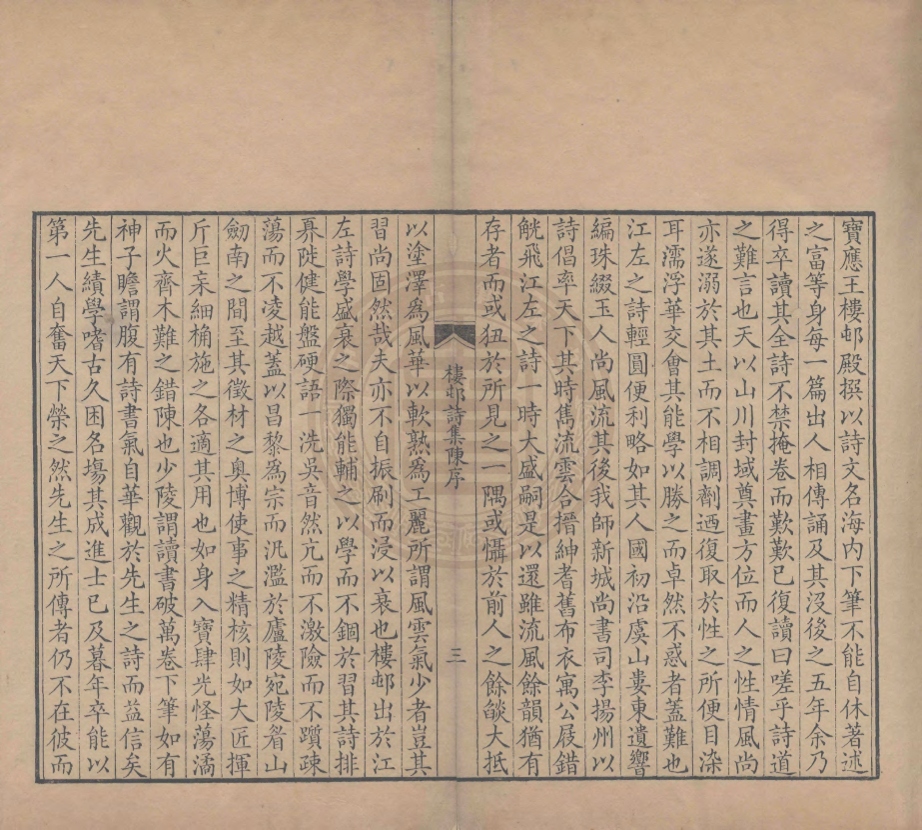 寶應王樓邨殿撰以詩文名海內下筆不能自休著述
之富等身每一篇出人相傳誦及其沒後之五年余乃
得卒讀其全詩不禁掩卷而歎歎已復讀曰嗟乎詩道
之難言也天以山川封域奠畫方位而人之性情風尚
亦遂溺於其土而不相調劑迺復取於性之所便目染
耳濡浮華交會其能學以勝之而卓然不惑者蓋難也
江左之詩輕圓便利略如其人國初沿虞山婁東遺響
編珠綴玉人尚風流其後我師新城尚書司李揚州以
詩倡率天下其時雋流雲合搢紳耆舊布衣寓公屐錯
觥飛江左之詩一時大盛嗣是以還雖流風餘韻猶有
存者而或狃於所見之一隅或懾於前人之餘燄大抵
樓邨詩集陳序
三
以塗澤為風華以軟熟為工麗所謂風雲氣少者豈其
習尚固然哉夫亦不自振刷而浸以衰也樓邨出於江
左詩學盛衰之際獨能輔之以學而不錮於習其詩排
奡陡健能盤硬語一洗吳音然亢而不激險而不躓疎
蕩而不凌越蓋以昌黎為宗而汎濫於廬陵宛陵眉山
劒南之間至其徵材之奧博使事之精核則如大匠揮
斤巨杗細桷施之各適其用也如身入寶肆光怪蕩潏
而火齊木難之錯陳也少陵謂讀書破萬卷下筆如有
神子瞻謂腹有詩書氣自華觀於先生之詩而益信矣
先生績學嗜古久困名塲其成進士已及暮年卒能以
第一人自奮天下榮之然先生之所傳者仍不在彼而